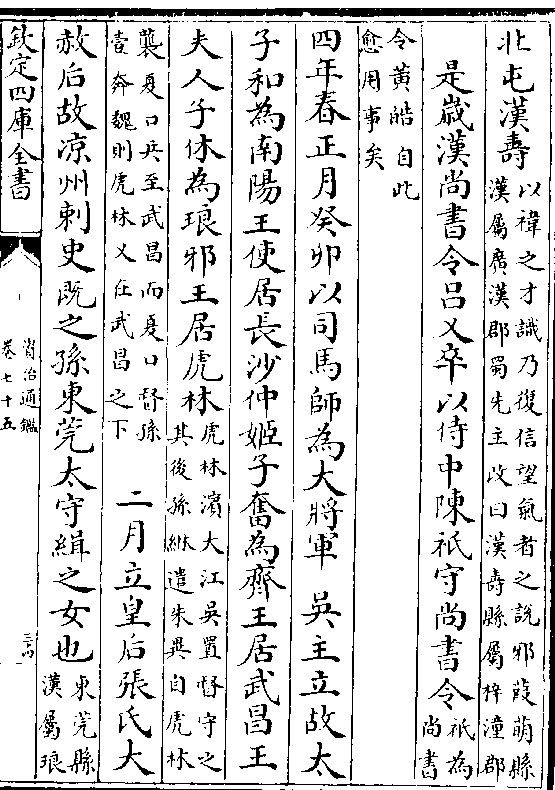 北屯漢壽以禕之才識乃復信望氣者之說邪葭萌縣
漢屬廣漢郡蜀先主改曰漢壽縣屬梓潼郡
是歲漢尚書令呂乂卒以侍中陳祗守尚書令祗為
尚書
令黃皓自此
愈用事矣
四年春正月癸卯以司馬師為大將軍 吳主立故太
子和為南陽王使居長沙仲姬子奮為齊王居武昌王
夫人子休為琅邪王居虎林虎林濱大江吳置督守之
其後孫綝遣朱異自虎林
襲夏口兵至武昌而夏口督孫
壹奔魏則虎林又在武昌之下
二月立皇后張氏大
赦后故涼州刺史既之孫東莞太守緝之女也東莞縣
漢屬琅
欽定四庫全書
資治通鑑
卷七十五